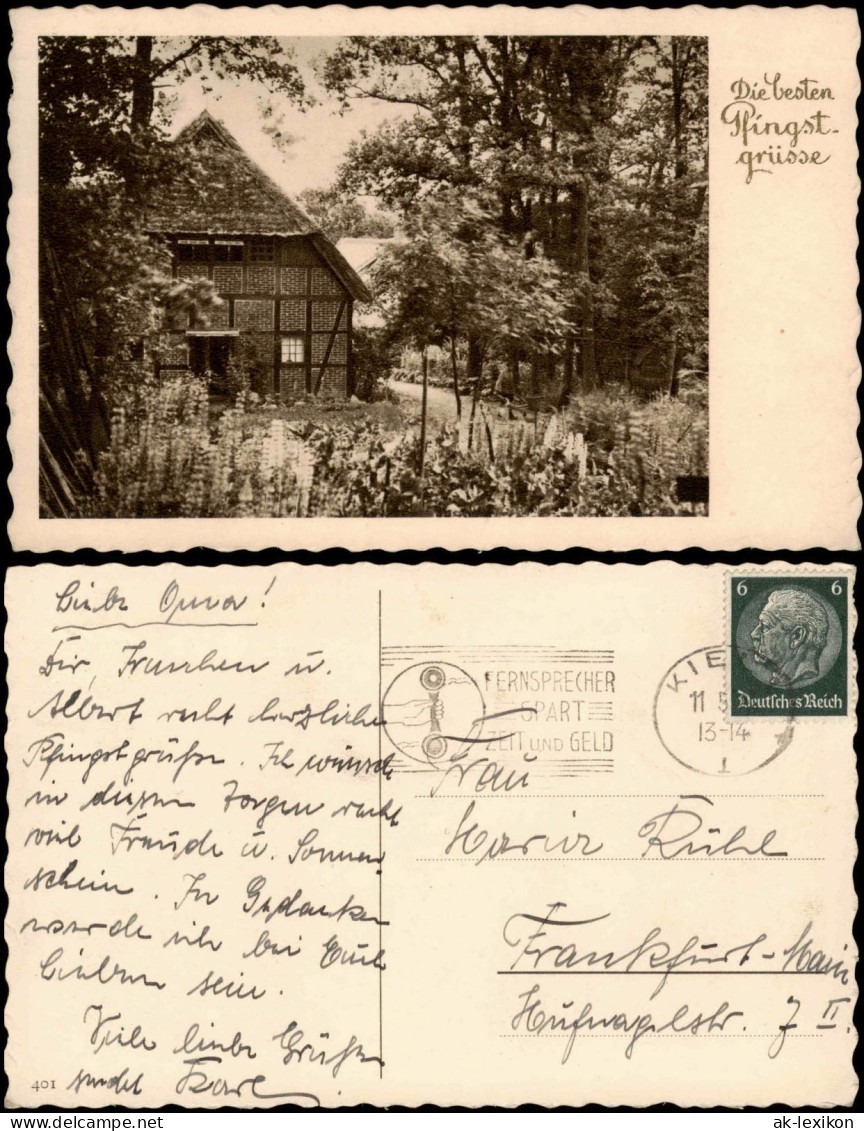 Die besten
Pfingst-
grüsse
Liebe Oma!
Dir, Franchen u.
Albert recht herzliche
Pfingstgrüße. Ich wünsche
in diesen Tagen recht
viel Freude u. Sonnen
schein. In Gedanken
werde ich bei Euch
Lieben sein.
Viele liebe Grüße
sendet Karl
401
FERNSPRECHER
SPART
ZEIT UND GELD
KIE
11 5
13-14
1
6 6
Deutsches Reich
Frau
Maria Rühl
Frankfurt-Main
Hufnagelstr. 7 II.
ak-lexikon